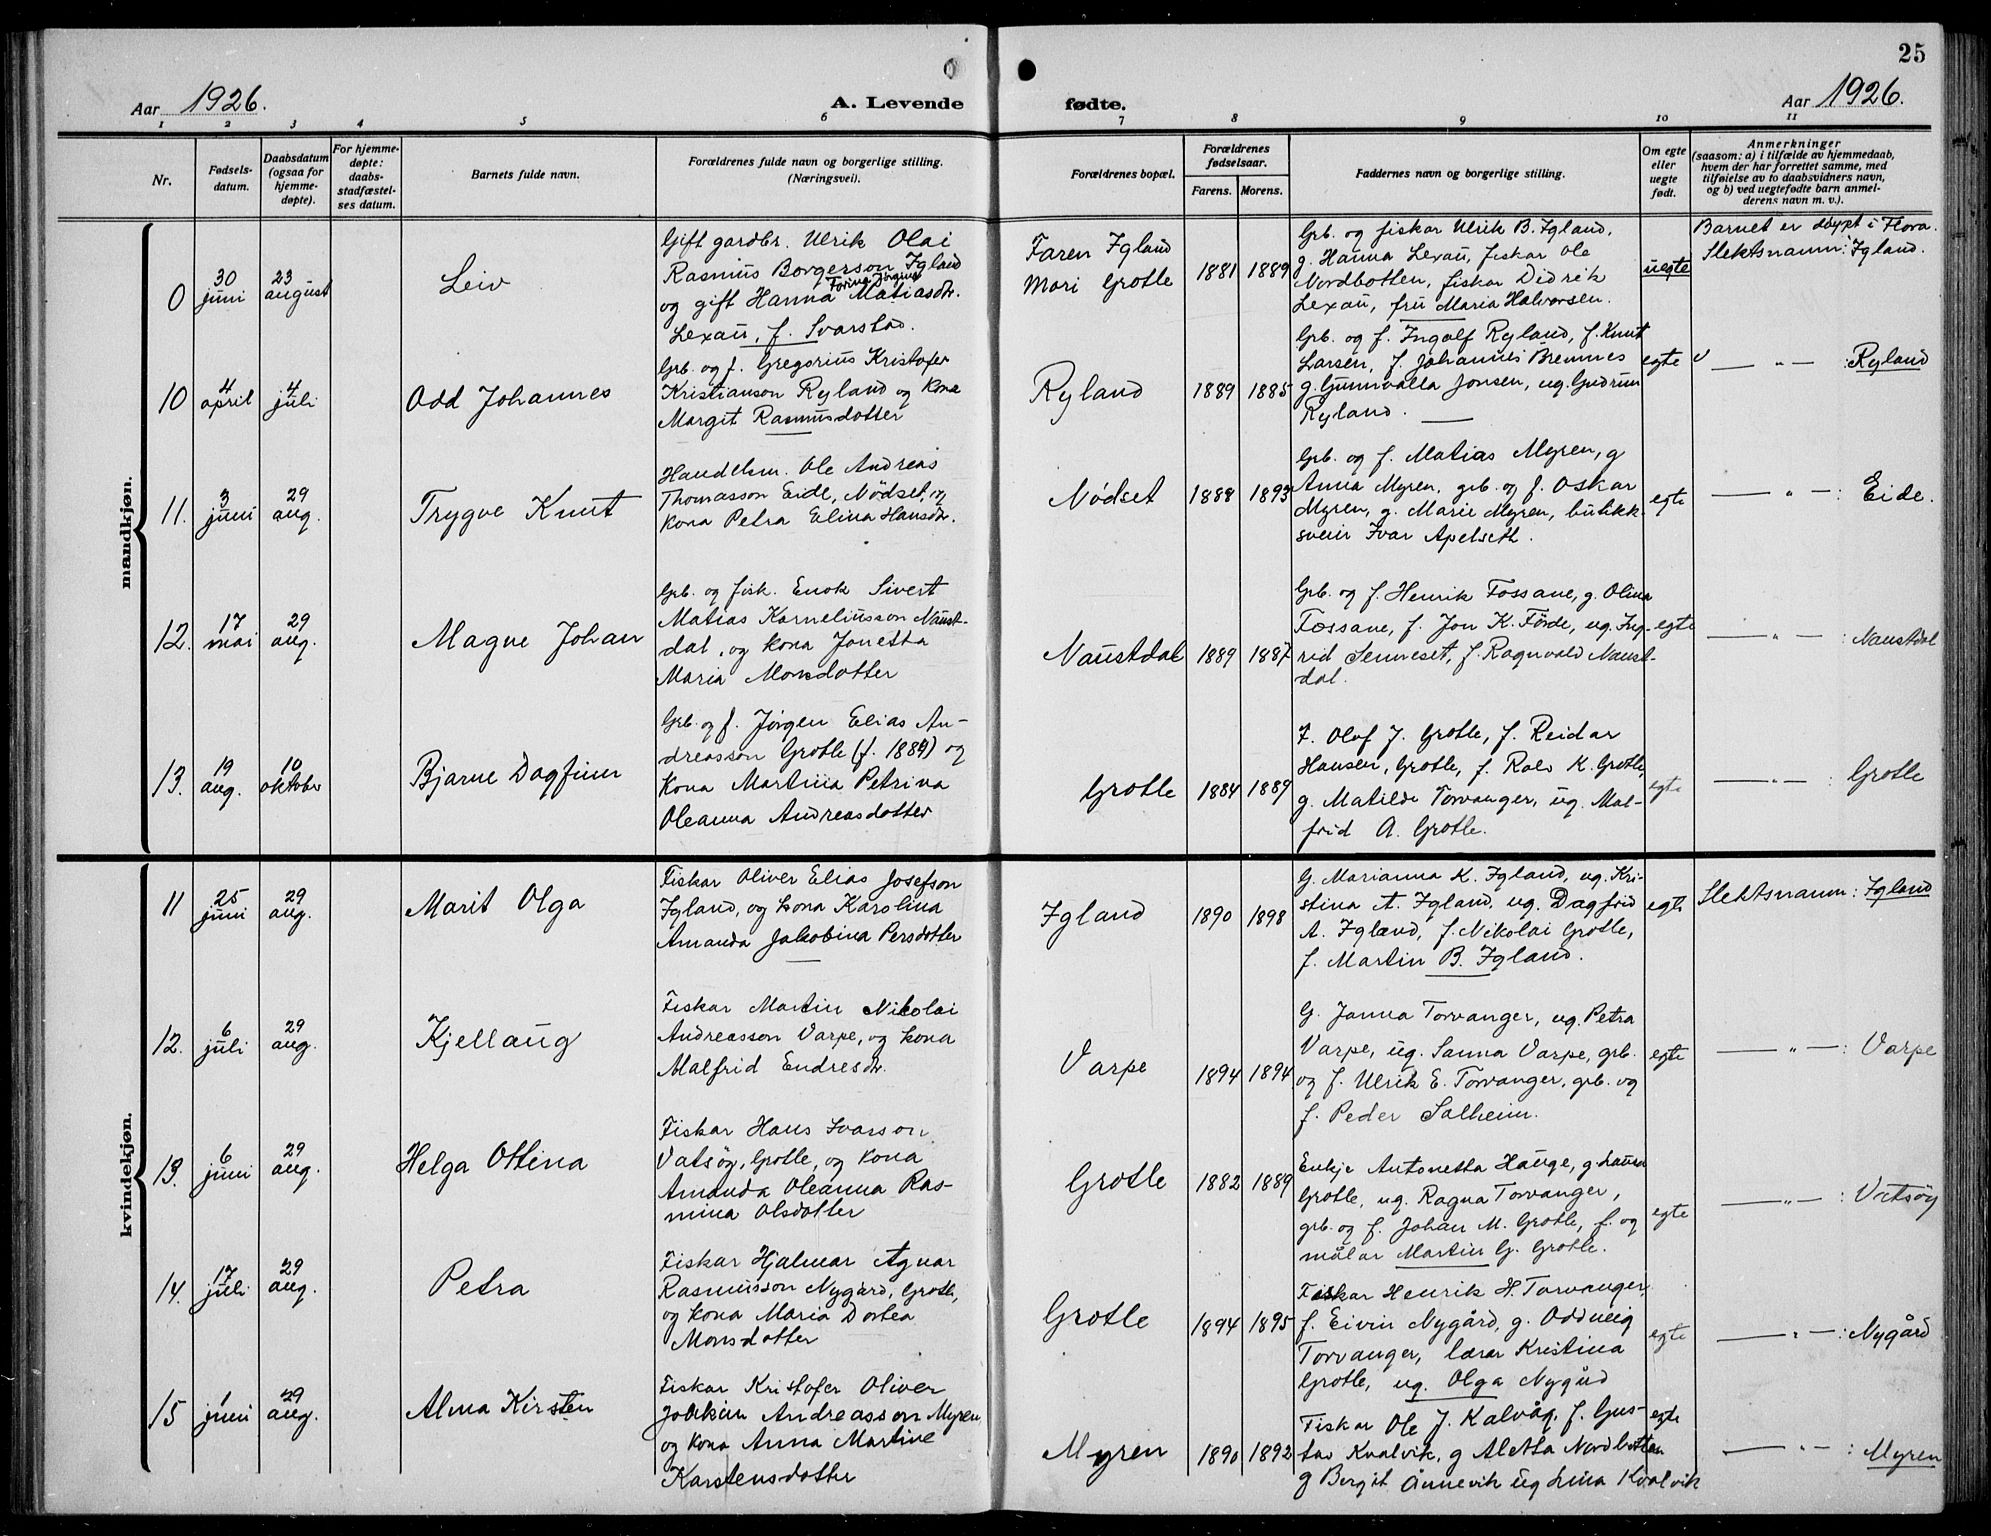 25
Aar 1926.
A. Levende fødte.
Aar 1926.
1 2 3 4 5 6 7 8 9 10 11
Nr.
Fødsels-
datum.
Daabsdatum
(ogsaa for
hjemme-
døpte).
For hjemme-
døpte:
daabs-
stadfæstel-
ses datum.
Barnets fulde navn.
Forældrenes fulde navn og borgerlige stilling.
(Næringsvei).
Forældrenes bopæl.
Forældrenes
fødselsaar.
Farens. Morens.
Faddernes navn og borgerlige stilling.
Om egte
eller
uegte
født.
Anmerkninger
(saasom: a) i tilfælde av hjemmedaab,
hvem der har forrettet samme, med
tilføielse av to daabsvidners navn,
og b) ved uegtefødte barn anmel-
derens navn m. v.).
mandkjøn.
0
30
juni
23
august
Leiv
Gift gardbr. Ulrik Olai
Rasmus Borgerson Igland
og gift Hanna Torina Jørgine Matiasdtr.
Lexau, f. Svarstad.
Faren Igland
Mori Grotle
1881 1889
Grb. og fiskar Ulrik B. Igland,
g. Hanna Lexau, fiskar Ole
Nordbotten, fiskar Didrik
Lexau, fru Maria Halvorsen.
uegte
Barnet er døypt i Flora.
Slektsnamn: Igland.
10
4
april
4
juli
Odd Johannes
Grb. og f. Gregorius Kristofer
Kristianson Ryland og kona
Margit Rasmusdotter
Ryland
1889 1885
Grb. og f. Ingolf Ryland, f. Knut
Larsen, f. Johannes Bremnes
g. Gunnvalla Jonsen, ug. Gudrun
Ryland.
egte
— " — : Ryland
11.
3
juni
29
aug.
Trygve Knut
Handelsm. Ole Andreas
Thomasson Eide, Nødset, og
kona Petra Elina Hansdtr.
Nødset
1888 1893
Grb. og f. Matias Myren, g
Anna Myren, grb. og f. Oskar
Myren, g. Marie Myren, butikk-
svein Ivar Apelseth.
egte
— " — : Eide.
12.
17
mai
29
aug.
Magne Johan
Grb. og fisk. Enok Sivert
Matias Korneliusson Naust-
dal, og kona Jonetta
Maria Monsdotter
Naustdal
1889 1887
Grb. og f. Henrik Fossane, g. Olina
Fossane, f. Jon K. Förde, ug. Ing-
rid Senneset, f. Ragnvald Naust-
dal.
egte
— " — : Naustdal
13.
19
aug.
10
oktober
Bjarne Dagfinn
Grb. og f. Jørgen Elias An-
dreasson Grotle (f. 1884) og
kona Martina Petrina
Oleanna Andreasdotter
Grotle
1884 1889
F. Olaf J. Grotle, f. Reidar
Hansen, Grotle, f. Rolv K. Grotle,
g. Matilde Torvanger, ug. Mal-
frid A. Grotle.
egte
— " — : Grotle
kvindekjøn.
11
25
juni
29
aug.
Marit Olga
Fiskar Oliver Elias Josefson
Igland, og kona Karolina
Amanda Jakobina Persdotter
Igland
1890 1898
G. Marianna K. Igland, ug. Kri-
stina A. Igland, ug. Dagfrid
A. Igland, f. Nikolai Grotle,
f. Martin B. Igland.
egte
Slektsnamn: Igland
12.
6
juli
29
aug.
Kjellaug
Fiskar Martin Nikolai
Andreasson Varpe, og kona
Malfrid Endresdtr.
Varpe
1894 1894
G. Janna Torvanger, ug. Petra
Varpe, ug. Sanna Varpe, grb.
og f. Ulrik E. Torvanger, grb. og
f. Peder Solheim.
egte
— " — : Varpe
13.
6
juni
29
aug.
Helga Ottina
Fiskar Hans Ivarson
Vatsöy, Grotle, og kona
Amanda Oleanna Ras-
mina Olsdotter
Grotle
1882 1889
Enkje Antonetta Hauge, g. Laura
Grotle, ug. Ragna Torvanger,
grb. og f. Johan M. Grotle, f. og
målar Martin G. Grotle.
egte
— " — : Vatsöy
14.
17
juli
29
aug.
Petra
Fiskar Hjalmar Agnar
Rasmusson Nygård, Grotle,
og kona Maria Dortea
Monsdotter
Grotle
1894 1895
Fiskar Henrik H. Torvanger,
f. Eivin Nygård, g. Oddneig
Torvanger, lærar Kristina
Grotle, ug. Olga Nygård
egte
— " — : Nygård
15
1
juni
29
aug.
Alma Kirsten
Fiskar Kristofer Oliver
Joakim Andreasson Myren
og kona Anna Martine
Karstensdotter
Myren
1890 1892
Fiskar Ole J. Kalvåg, f. Gus-
tav Kvalvik, g Aletta Nordbotten
g Bergit Ånnevik ug Lina Kvalvik
egte
— " — : Myren